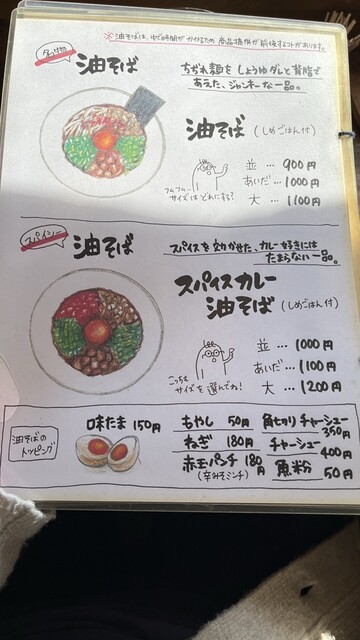 ※油そばは、ゆで時間がかかるため 商品提供が前後するコトがあります。
油そば
ちぢれ麺をしょうゆダレと背脂で
あえた、ジャンキーな一品。
油そば (しめごはん付)
並 … 900円
あいだ … 1000円
大 … 1100円
フムフム…
サイズはどれにする?
スパイシー
油そば
スパイスを効かせた、カレー好きには
たまらない一品。
スパイスカレー
油そば (しめごはん付)
並 … 1000円
あいだ … 1100円
大 … 1200円
こっちも
サイズを選んでね!
油そばの
トッピング
味たま 150円
もやし 50円
ねぎ 180円
赤玉パンチ 180円
(辛みそミンチ)
角切りチャーシュー
350円
チャーシュー
400円
魚粉 50円